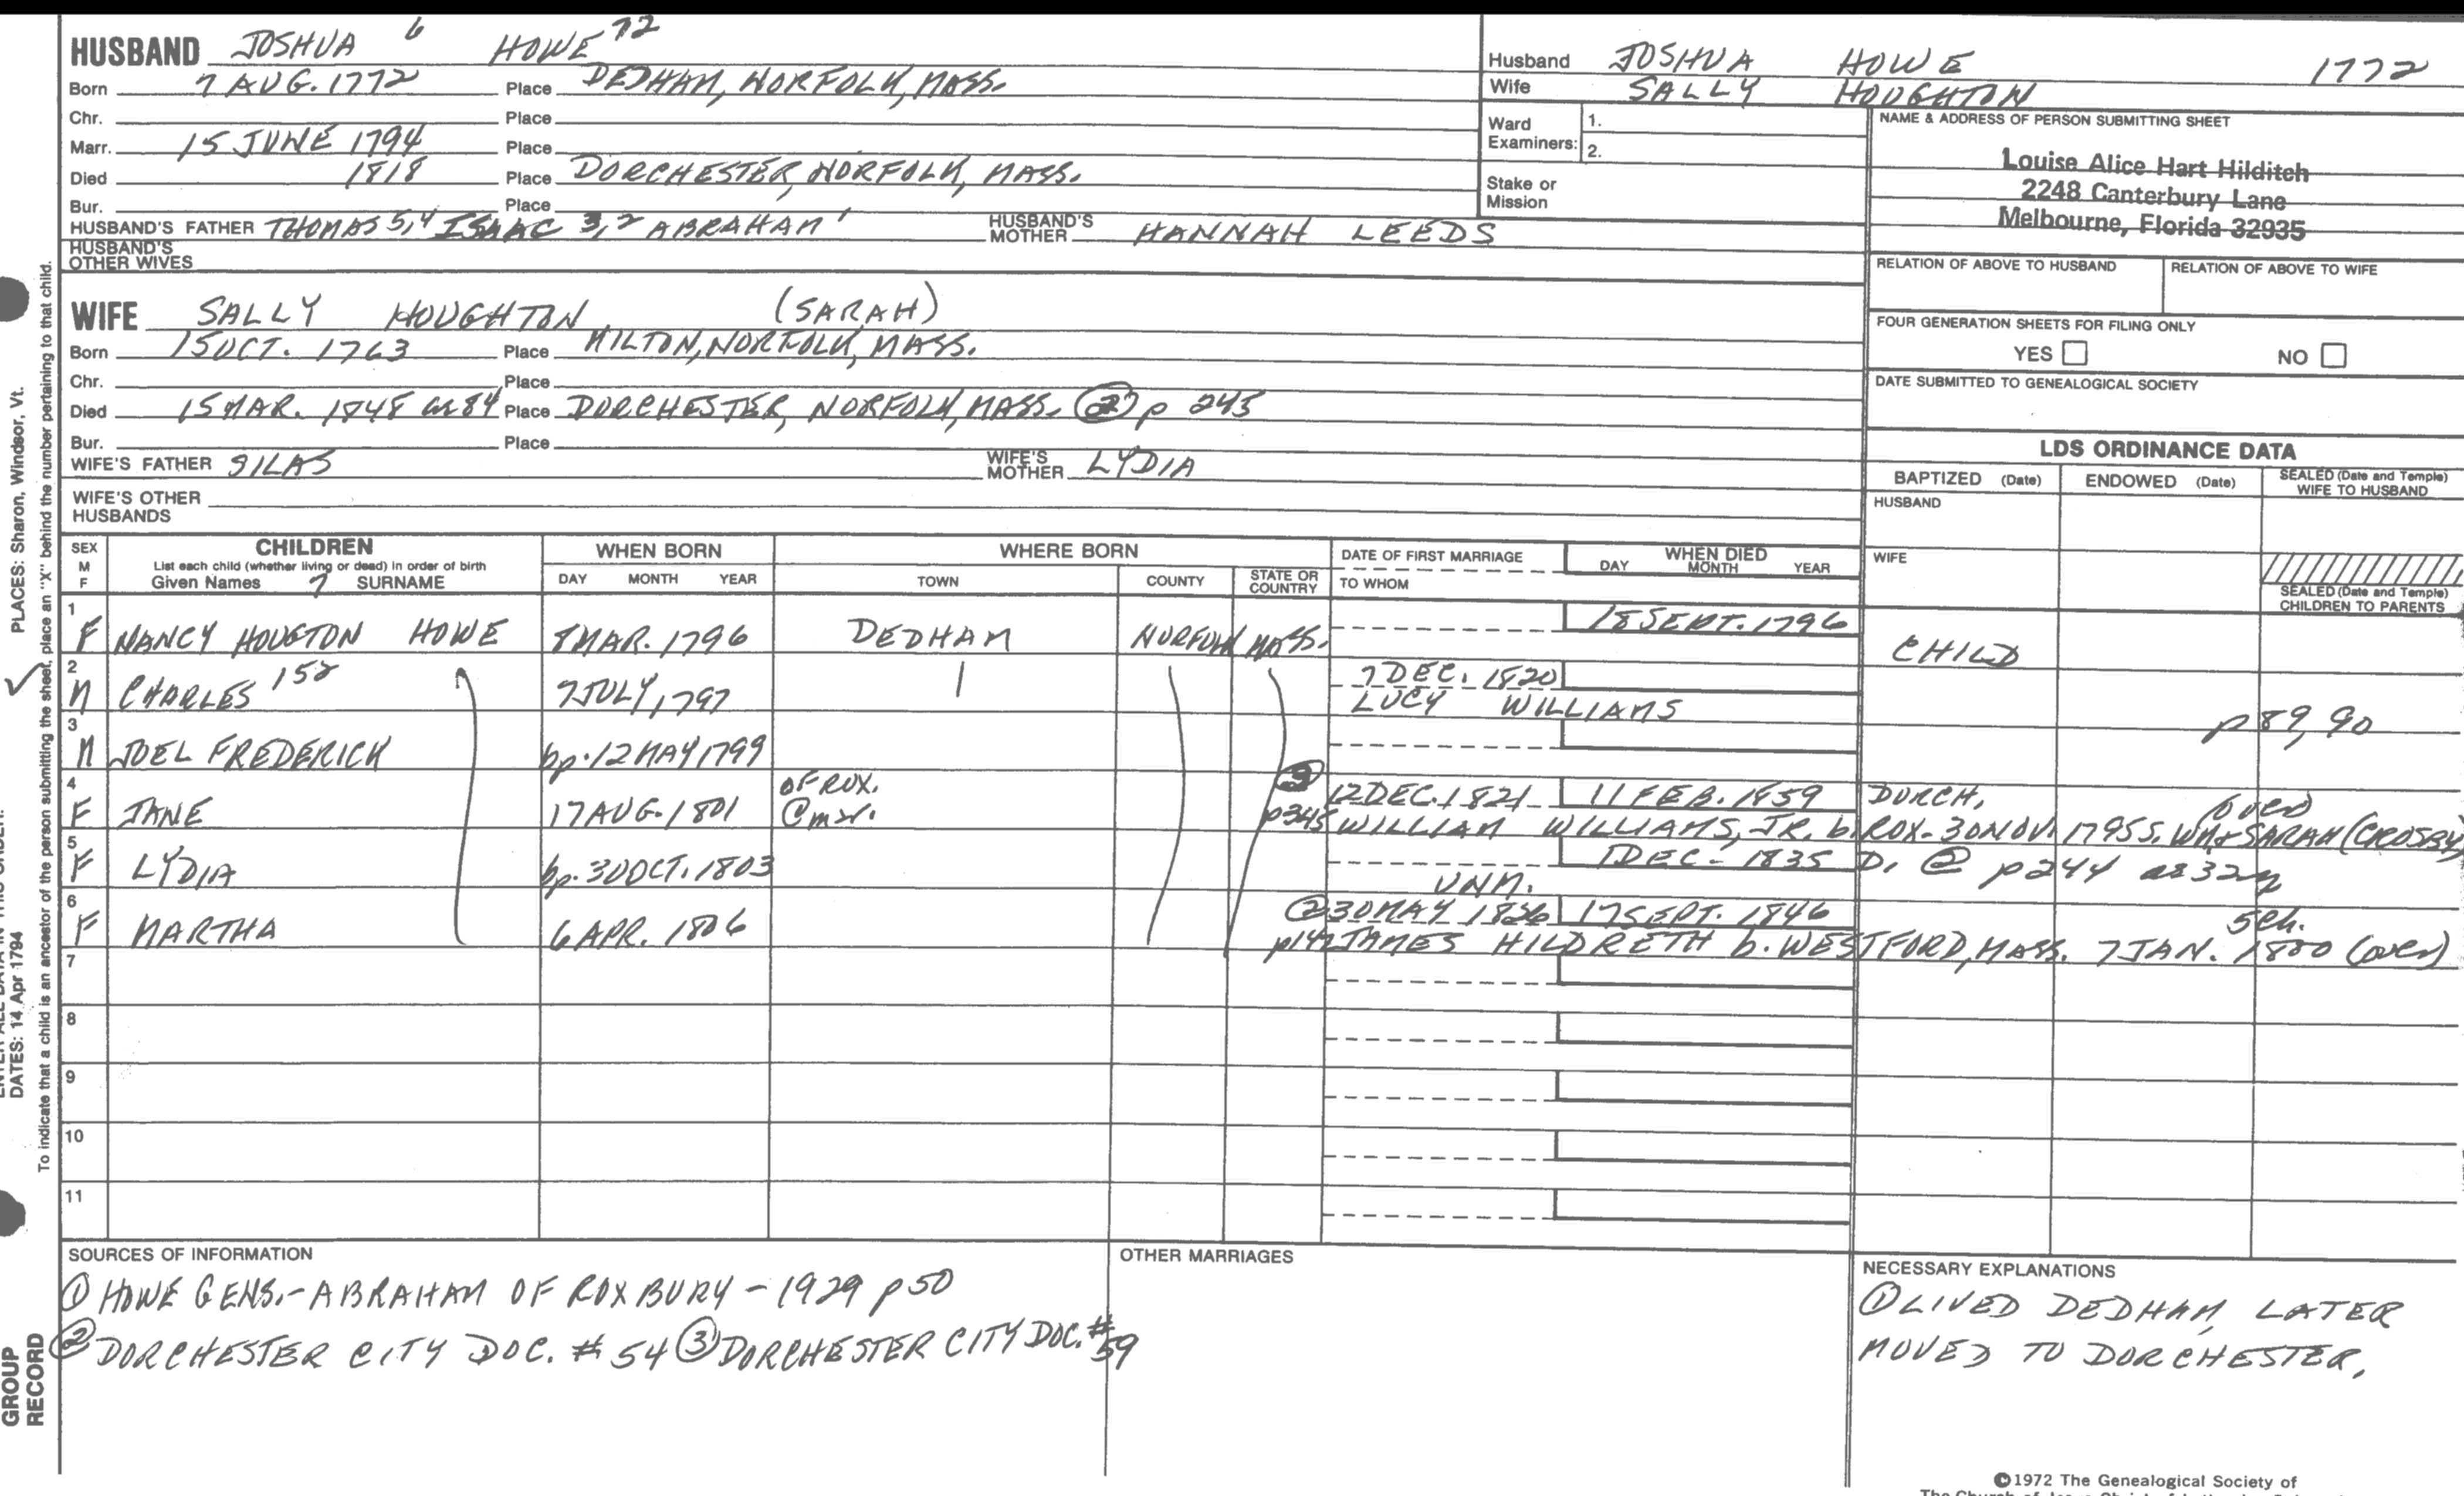 HUSBAND JOSHUA 6 HOWE 72
Born 7 AUG. 1772 Place DEDHAM, NORFOLK, MASS.
Chr. Place
Marr. 15 JUNE 1794 Place
Died 1818 Place DORCHESTER, NORFOLK, MASS.
Bur. Place
HUSBAND'S FATHER THOMAS 5,4 ISAAC 3,2 ABRAHAM 1 HUSBAND'S MOTHER HANNAH LEEDS
HUSBAND'S OTHER WIVES
Husband JOSHUA HOWE 1772
Wife SALLY HOUGHTON
Ward Examiners: 1.
2.
Stake or Mission
NAME & ADDRESS OF PERSON SUBMITTING SHEET
Louise Alice Hart Hilditch
2248 Canterbury Lane
Melbourne, Florida 32935
RELATION OF ABOVE TO HUSBAND RELATION OF ABOVE TO WIFE
FOUR GENERATION SHEETS FOR FILING ONLY
YES NO
DATE SUBMITTED TO GENEALOGICAL SOCIETY
WIFE SALLY HOUGHTON (SARAH)
Born 15 OCT. 1763 Place MILTON, NORFOLK, MASS.
Chr. Place
Died 15 MAR. 1848 ae 84 Place DORCHESTER, NORFOLK, MASS. ② p 243
Bur. Place
WIFE'S FATHER SILAS WIFE'S MOTHER LYDIA
WIFE'S OTHER HUSBANDS
LDS ORDINANCE DATA
BAPTIZED (Date) ENDOWED (Date) SEALED (Date and Temple) WIFE TO HUSBAND
HUSBAND
WIFE
SEALED (Date and Temple) CHILDREN TO PARENTS
SEX M F CHILDREN WHEN BORN WHERE BORN DATE OF FIRST MARRIAGE WHEN DIED
List each child (whether living or dead) in order of birth
Given Names 7 SURNAME DAY MONTH YEAR TOWN COUNTY STATE OR COUNTRY TO WHOM DAY MONTH YEAR
1 F NANCY HOUGTON HOWE 8 MAR. 1796 DEDHAM NORFOLK MASS. 18 SEPT. 1796 CHILD
2 M CHARLES 152 7 JULY, 1797 7 DEC. 1820
LUCY WILLIAMS p 89, 90
3 M JOEL FREDERICK bp. 12 MAY 1799
4 F JANE 17 AUG. 1801 OF ROX. @ mar. ③ p345 12 DEC. 1821 11 FEB. 1859 DORCH. (over)
WILLIAM WILLIAMS, JR. b. ROX. 30 NOV. 1795 S. WM + SARAH (CROSBY)
5 F LYDIA bp. 30 OCT. 1803 1 DEC - 1835 D. @ p244 ae 32y
UNM.
6 F MARTHA 6 APR. 1806 ② 30 MAY 1826 17 SEPT. 1846 5 ch.
p142 JAMES HILDRETH b. WESTFORD, MASS. 7 JAN. 1800 (over)
7
8
9
10
11
SOURCES OF INFORMATION
① HOWE GENS.-ABRAHAM OF ROXBURY - 1929 p 50
② DORCHESTER CITY DOC. # 54 ③ DORCHESTER CITY DOC. # 59
OTHER MARRIAGES
NECESSARY EXPLANATIONS
① LIVED DEDHAM, LATER
MOVED TO DORCHESTER.
©1972 The Genealogical Society of
PLACES: Sharon, Windsor, Vt.
DATES: 14 Apr 1794
To indicate that a child is an ancestor of the person submitting the sheet, place an "X" behind the number pertaining to that child.
GROUP
RECORD